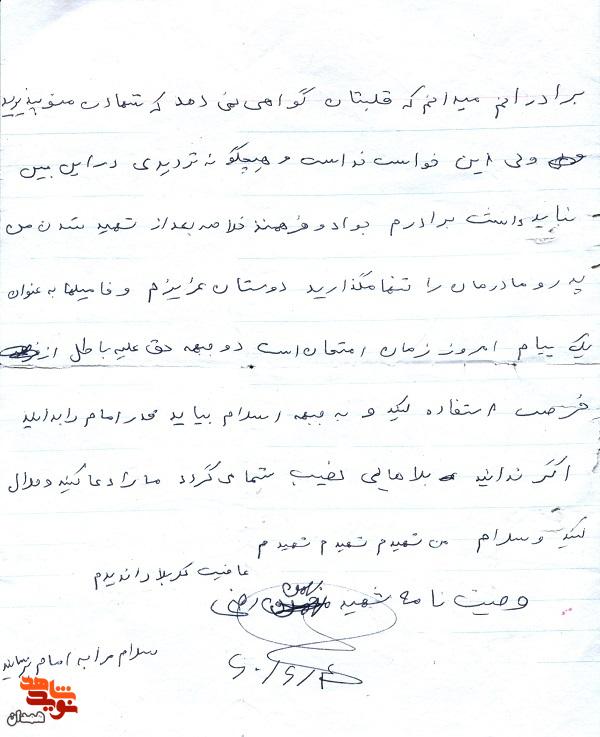 برادرانم میدانم که قلبتان گواهی نمی دهد که شهادت منو بپذیرید
ولی این خواست خداست و هیچگونه تردیدی در این بین
نباید داشت برادرم جواد و فرهمند خلاصه بعد از شهید شدن من
پدر و مادرمان را تنها مگذارید دوستان عزیزم و فامیلها به عنوان
یک پیام امروز زمان امتحان است دو جبهه حق علیه باطل از
فرصت استفاده کنید و به جبهه اسلام بیاید قدر امام را بدانید
اگر ندانید بلاهایی نصیب شما می گردد ما را دعا کنید و ملال
نکنید وسلام من شهیدم شهیدم شهیدم
عاقبت کربلا را ندیدم
وصیت نامه شهید بهمن رضی
سلام مرا به امام برسانید
شاهد
نوید
همدان